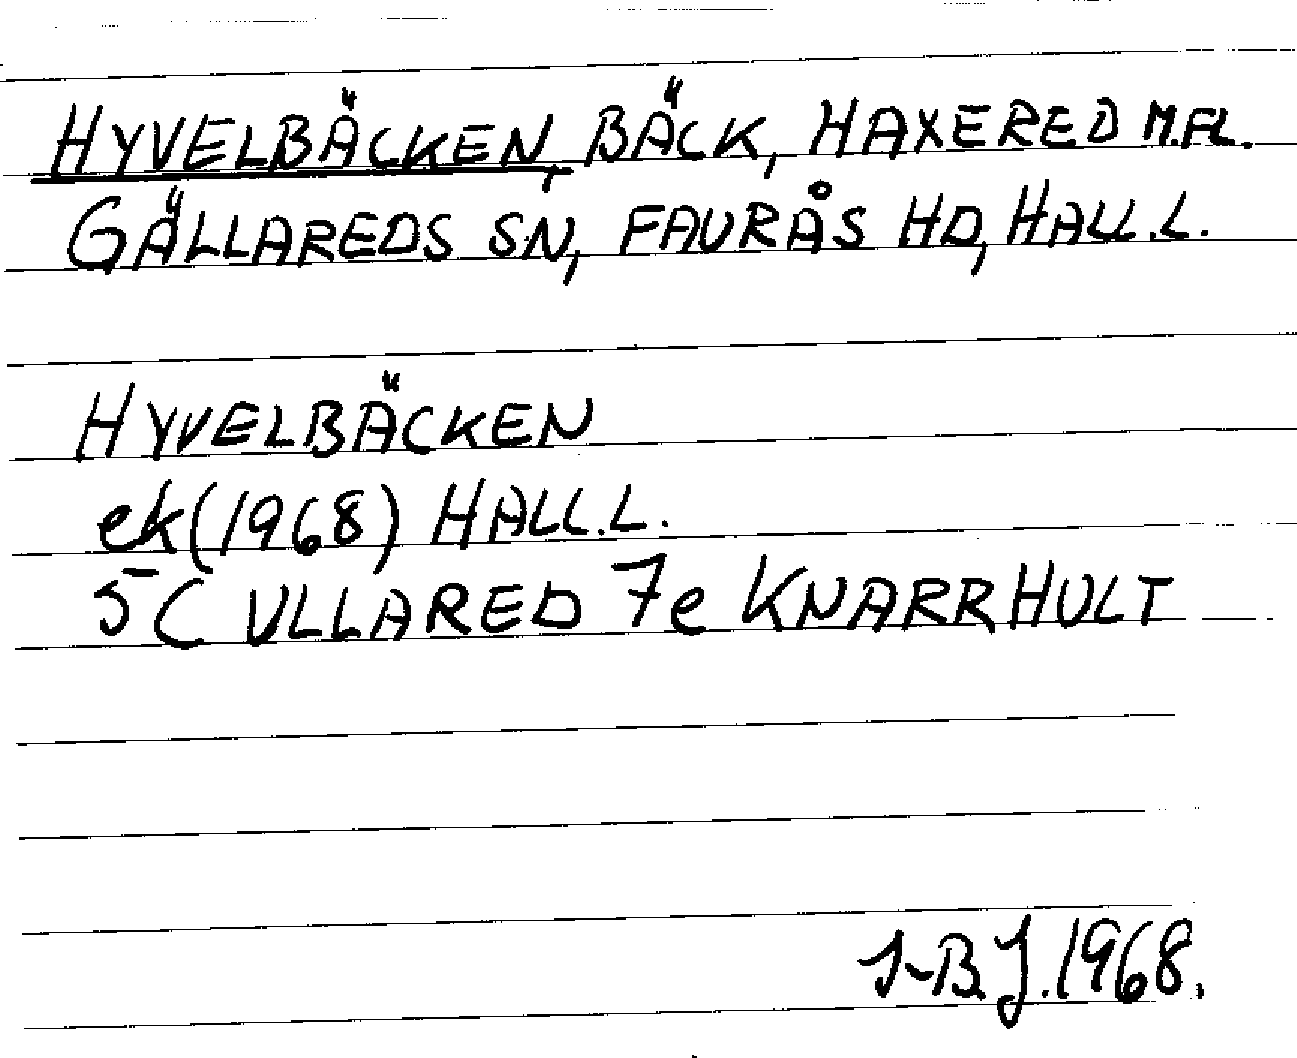 HYVELBÄCKEN, BÄCK, HAXERED M.FL.
GÄLLAREDS SN, FAURÅS HD, HALL.L.
HYVELBÄCKEN
ek (1968) HALL.L.
5C ULLARED 7e KNARRHULT
I-B.J. 1968.